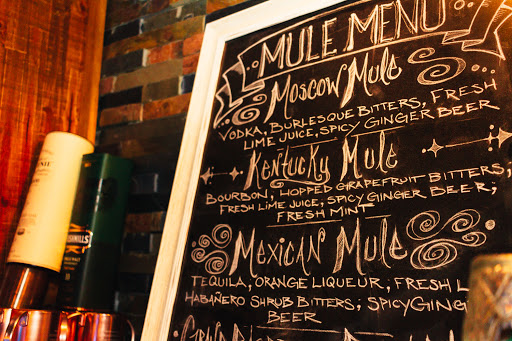 MULE MENU
MOSCOW MULE
VODKA, BURLESQUE BITTERS, FRESH
LIME JUICE, SPICY GINGER BEER
KENTUCKY MULE
BOURBON, HOPPED GRAPEFRUIT BITTERS,
FRESH LIME JUICE, SPICY GINGER BEER,
FRESH MINT
MEXICAN MULE
TEQUILA, ORANGE LIQUEUR, FRESH L
HABAÑERO SHRUB BITTERS, SPICY GING
BEER